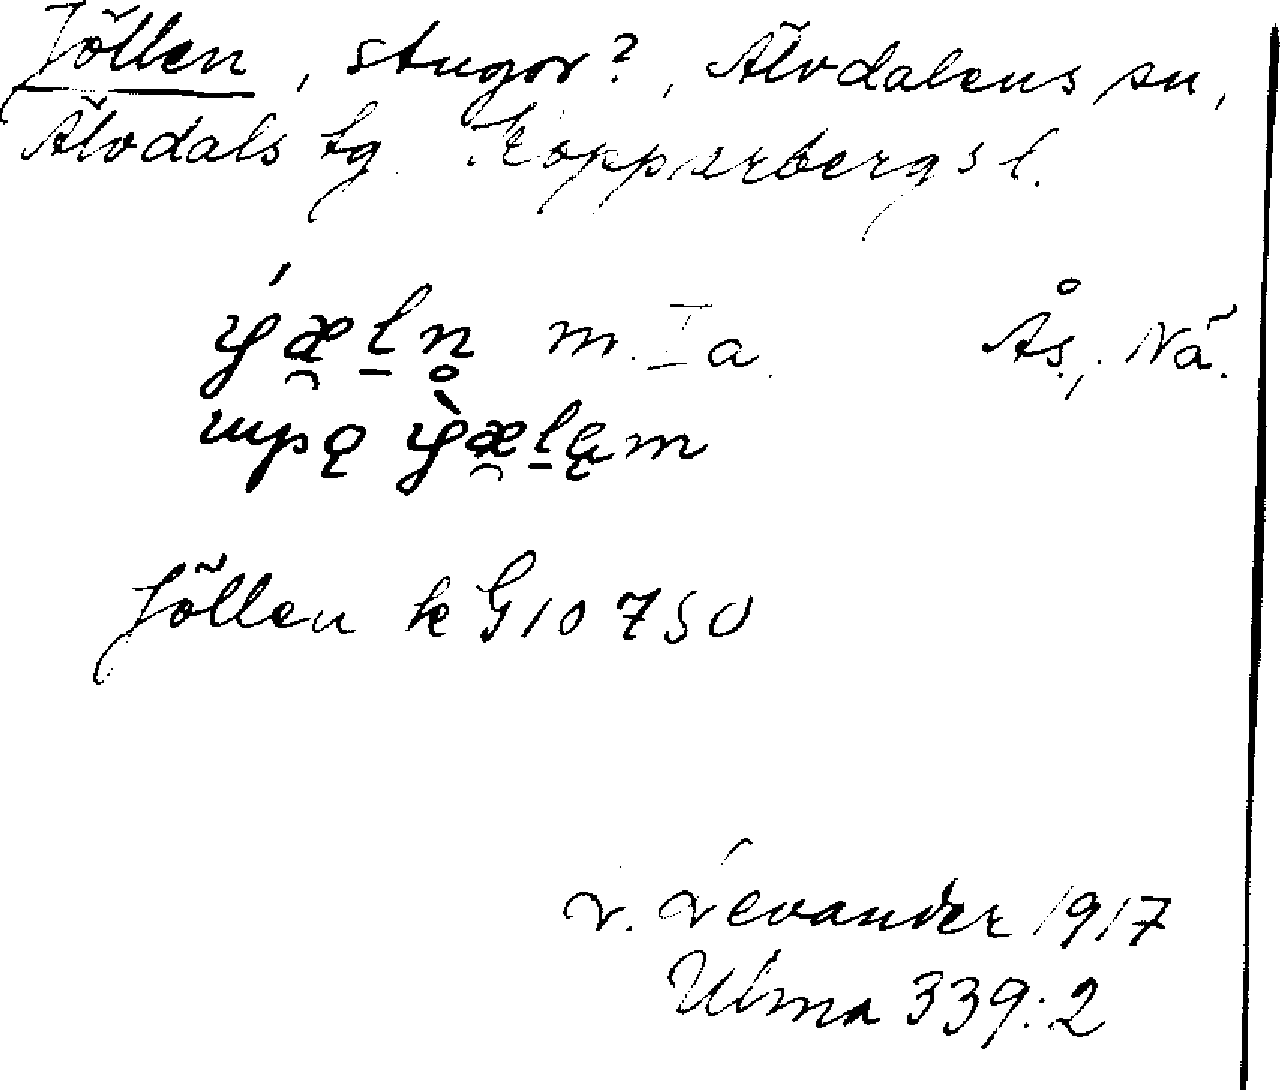 Jöllen, stugor?, Älvdalens sn,
Älvdals tg. Kopparbergs l.
m. I a. Ås., Nä.
Jöllen k G10 750
L. Levander 1917
Ulma 339:2